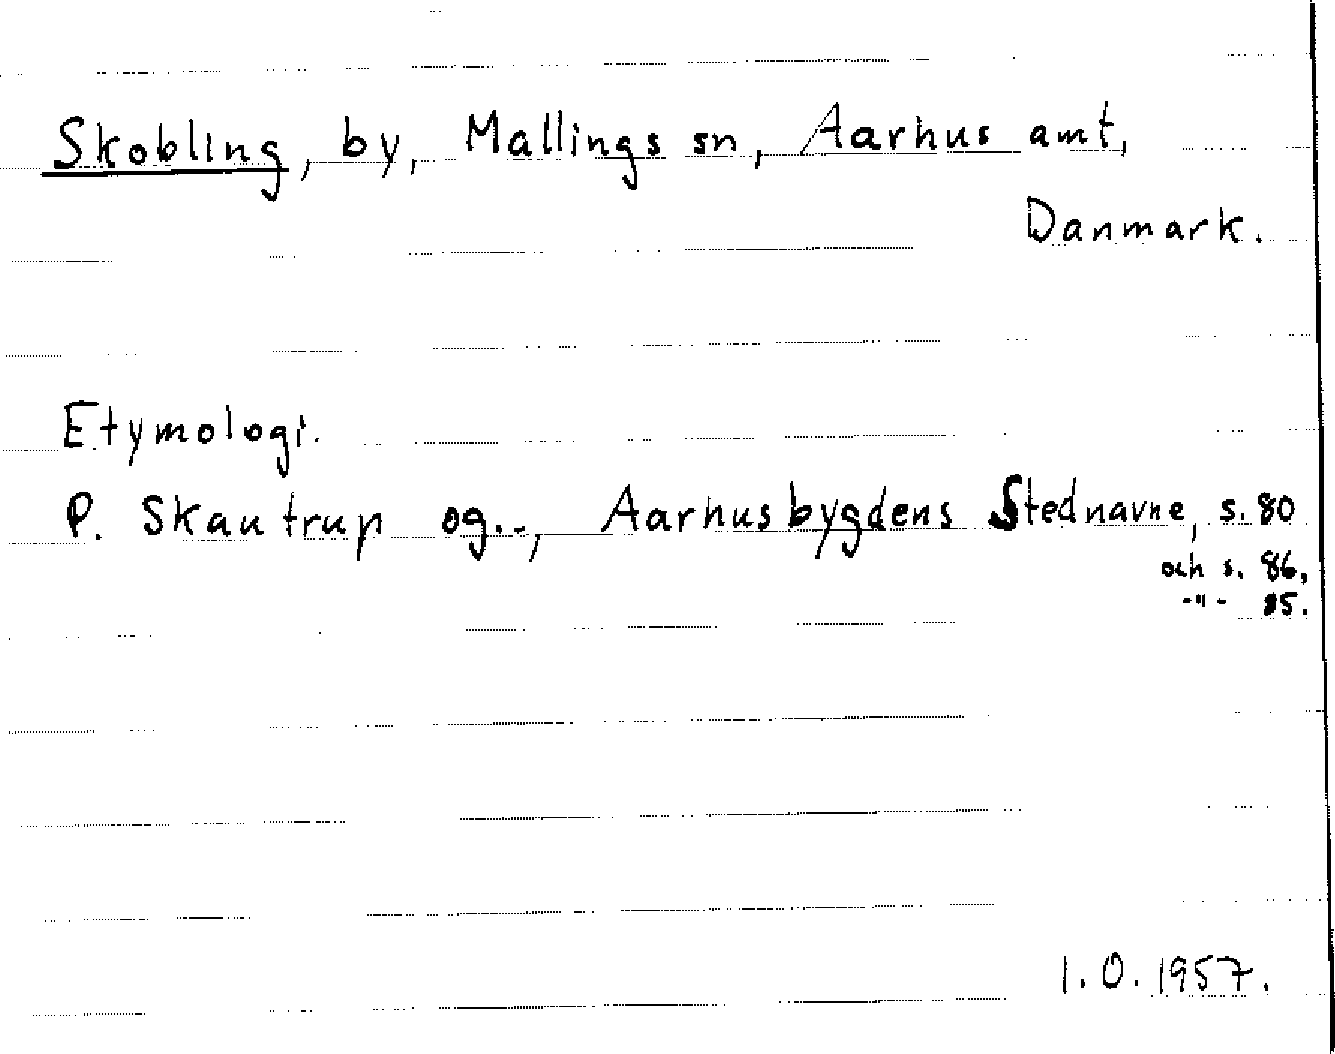 Skobling, by, Mallings sn, Aarhus amt,
Danmark.
Etymologi.
P. Skautrup og.-, Aarhusbygdens Stednavne, s. 80
och s. 86,
-"- 85.
1.0.1957.